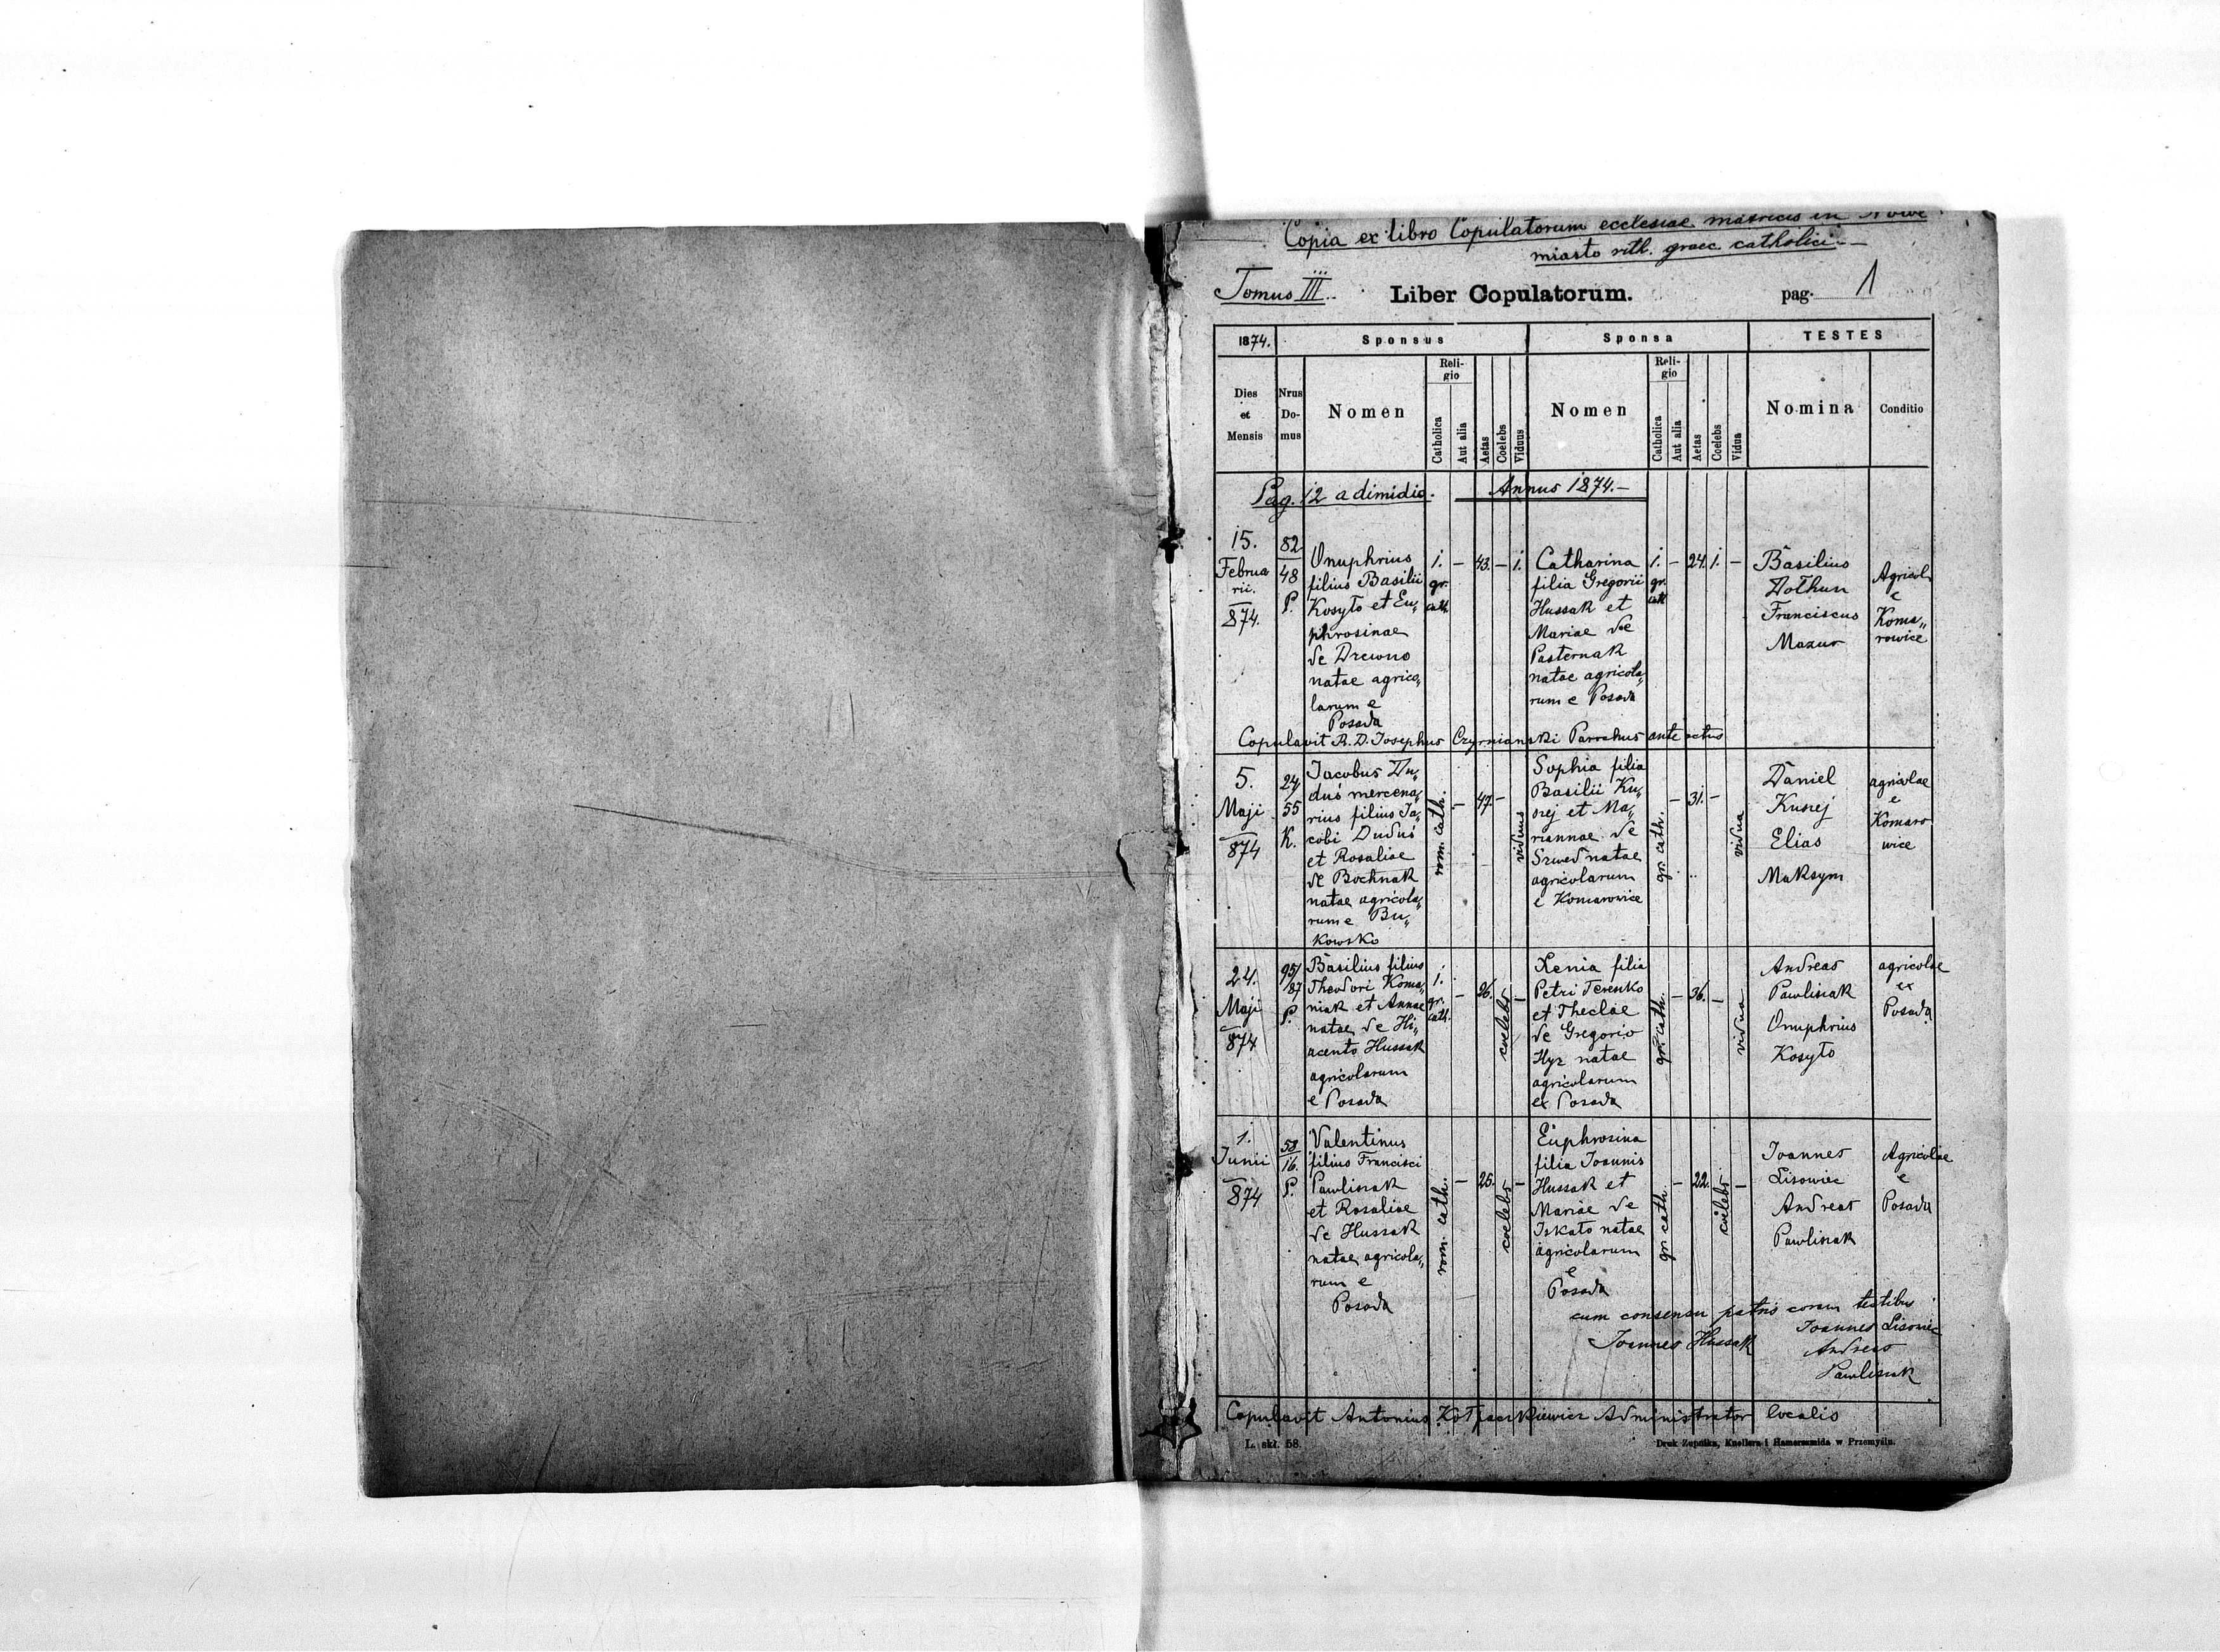 Copia ex libro Copulatorum ecclesiae matricis in Nowe
miasto rith. graec. catholici
Tomus III. Liber Copulatorum. pag. 1
1874. Sponsus Sponsa TESTES
Dies et Mensis
Nrus Do-mus
Nomen
Reli-gio
Catholica
Aut alia
Aetas
Coelebs
Viduus
Nomen
Reli-gio
Catholica
Aut alia
Aetas
Coelebs
Vidua
Nomina
Conditio
Pag. 12 a dimidio. Annus 1874.
15.
Februa
rii.
874.
82
48
P.
Onuphrius
filius Basilii
Kosyło et Eu„
phrosinae
de Drewno
natae agrico„
larum e
Posada
1.
gr.
cath.
– 43. – 1.
Catharina
filia Gregorii
Hussak et
Mariae de
Pasternak
natae agricola„
rum e Posada
1.
gr.
cath
– 24. 1. –
Basilius
Dołhun
Franciscus
Mazur
Agricol
e
Koma„
rowice
Copulavit R. D. Josephus Czyrnianski Parochus ante actus
5.
Maji
874
24/
55
K.
Jacobus Du„
duś mercena„
rius filius Ja„
cobi Duduś
et Rosaliae
de Bochnak
natae agricola„
rum e Bu„
kowsko
rom. cath.
– 47. –
viduus
Sophia filia
Basilii Ku„
nej et Ma„
riannae de
Szwed natae
agricolarum
e Komarowice
gr. cath.
– 31. –
vidua
Daniel
Kunej
Elias
Maksym
agricolae
e
Komaro
wice
24.
Maji
874
95/
87
P.
Basilius filius
Theodori Koma„
niak et Annae
natae de Hi„
acento Hussak
agricolarum
e Posada
1.
gr.
cath.
– 26.
coelebs
–
Xenia filia
Petri Terenko
et Theclae
de Gregorio
Hyz natae
agricolarum
ex Posada
gr. cath.
– 36. –
vidua
Andreas
Pawlisiak
Onuphrius
Kosyło
agricolae
ex
Posada
1.
Junii
874
58
16.
P.
Valentinus
filius Francisci
Pawlisiak
et Rosaliae
de Hussak
natae agricola„
rum e
Posada
rom. cath.
– 25.
coelebs
–
Euphrosina
filia Joannis
Hussak et
Mariae de
Iskało natae
agricolarum
e
Posada
gr. cath.
– 22.
coelebs
–
Joannes
Lisowiec
Andreas
Pawlisiak
Agricolae
e
Posada
cum consensu patris coram testibus
Joannes Hussak Joannes Lisowiec
Andreas
Pawlisiak
Copulavit Antonius Administrator localis
L. skł. 58. Druk Zupnika, Knollera i Hamerszmida w Przemyślu.